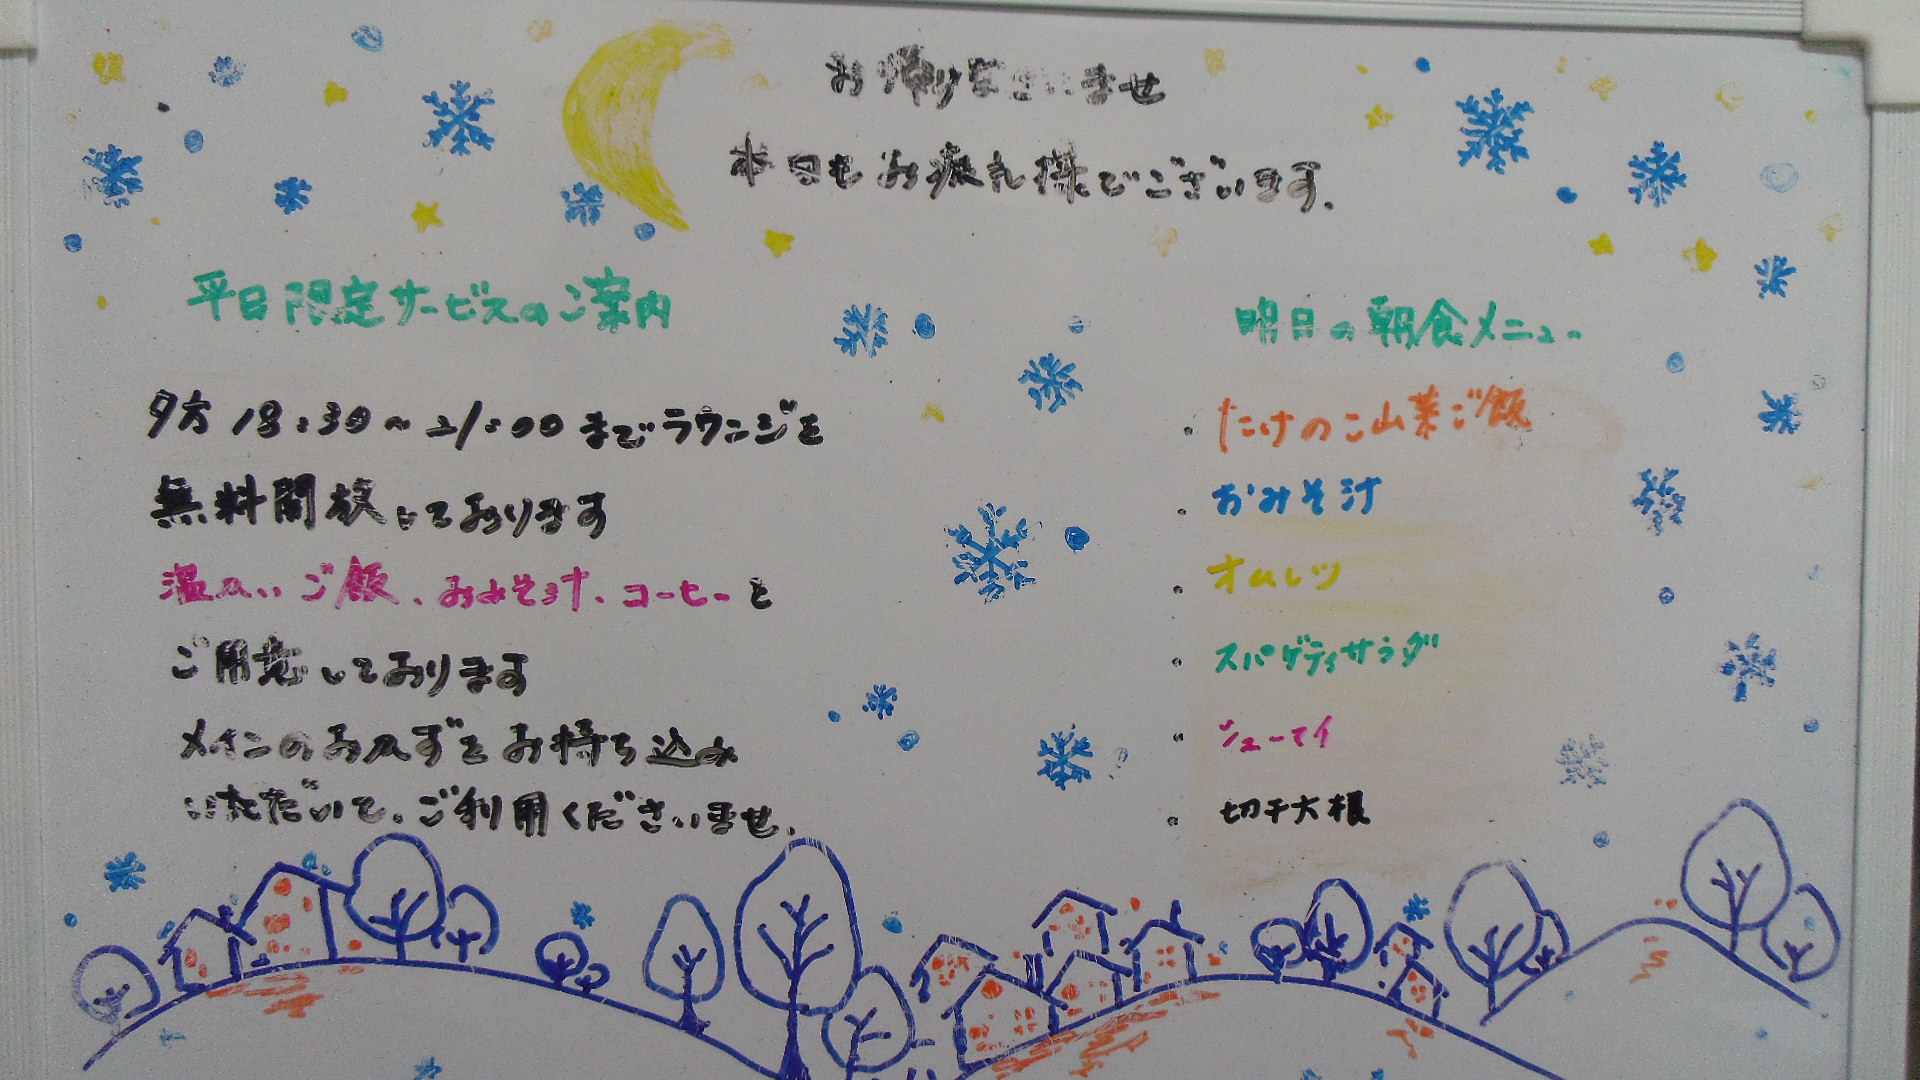 お帰りなさいませ
本日もお疲れ様でございます.
平日限定サービスのご案内
夕方 18:30〜21:00 までラウンジを
無料開放しております
温かいご飯、おみそ汁、コーヒーを
ご用意しております
メインのおかずをお持ち込み
いただいて、ご利用くださいませ.
明日の朝食メニュー
・たけのこ山菜ご飯
・おみそ汁
・オムレツ
・スパゲティサラダ
・シューマイ
・切干大根